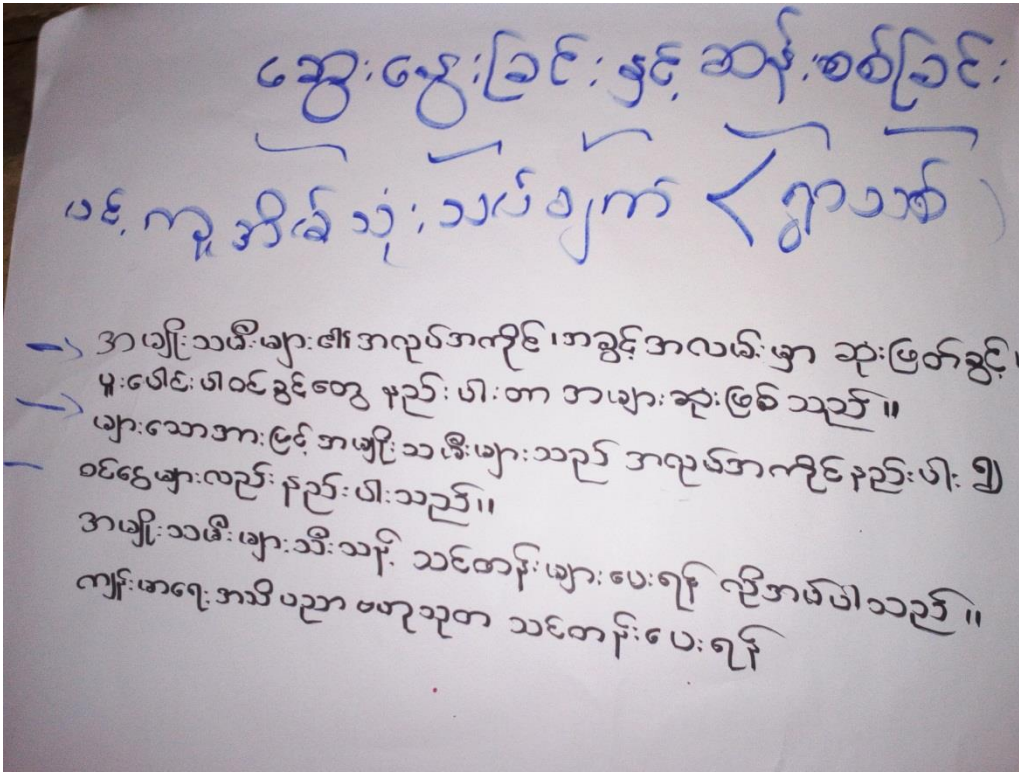 ဆွေးနွေးခြင်း နှင့် ဆန်းစစ်ခြင်း
သုံးသပ်ချက် (ရွာသစ်)
→ အမျိုးသမီးများ၏ အလုပ်အကိုင် ၊ အခွင့်အလမ်းမှာ ဆုံးဖြတ်ခွင့် ၊
ပူးပေါင်းပါဝင်ခွင့်တွေ နည်းပါးတာ အများဆုံးဖြစ်သည် ။
→ များသောအားဖြင့် အမျိုးသမီးများသည် အလုပ်အကိုင်နည်းပါး၍
- ဝင်ငွေများလည်း နည်းပါးသည်။
အမျိုးသမီးများသီးသန့် သင်တန်းများပေးရန် လိုအပ်ပါသည် ။
ကျန်းမာရေး အသိပညာ ဗဟုသုတ သင်တန်းပေးရန်